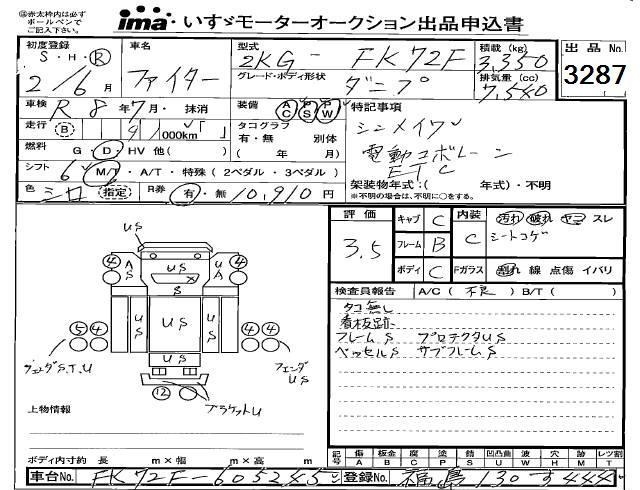 ㊟赤太枠内は必ず
ボールペンで
ご記入下さい。
ima・いすゞモーターオークション出品申込書
初度登録 S・H・R 2/6月
車名 ファイター
型式 2KG-FK72F
積載(kg) 3,350
出品No. 3287
グレード・ボディ形状 ダンプ
排気量(cc) 7,540
車検 R8年7月・抹消
装備 AC PS PW
特記事項
走行 B 91,000km
タコグラフ 有・無 別体 ( 年 月)
シンメイワ
燃料 G・D・HV 他( )
電動コボレーン
ETC
シフト 6 M/T・A/T・特殊(2ペダル・3ペダル)
架装物年式:( 年式)・不明
※不明の場合は、不明に○をする。
色 シロ (指定) R券 有・無 10,910円
評価 3.5
キャブ C 内装 C 汚れ 破れ ヤコゲ スレ
シートコゲ
フレーム B
ボディ C Fガラス 割れ 線 点傷 イバリ
検査員報告 A/C(不良) B/T( )
タコ無し
看板跡
フレームS プロテクタUS
ベッセルS サブフレームS
US
4 US 4
AS US US
S
US US US
5 4 4 4
フェンダS,T,U
フェンダUS
US
12
ブラケットU
上物情報
ボディ内寸約 長 m×幅 m×高 m
記号 傷A 板金B 腐C 塗P 錆S 凹凸曲U 波W 穴H 跡M レツ割T
車台No. FK72F-605245
登録No. 福島130す444